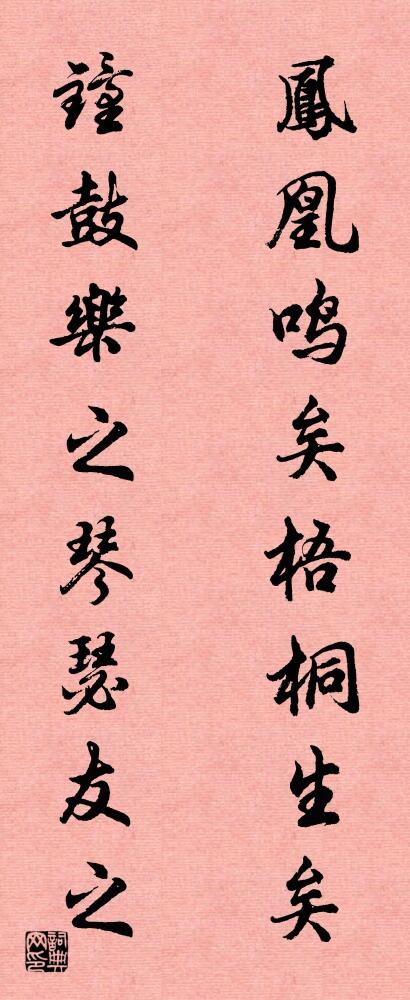 鳳凰鸣矣梧桐生矣
鐘鼓樂之琴瑟友之
詞典網印